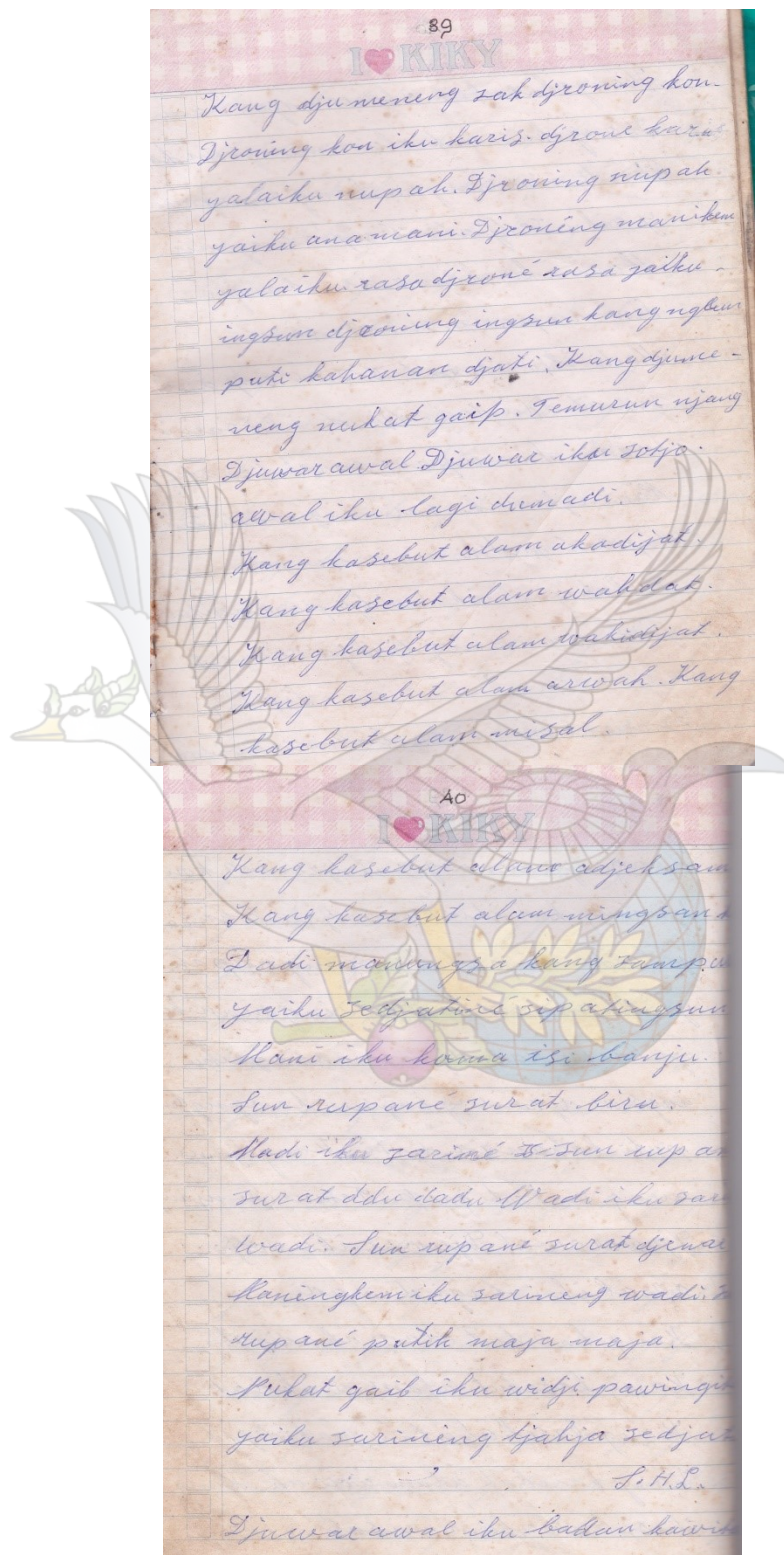 39
I KIKY
Kang djumeneng sak djroning kon-
Djroning kon iku karis. djrone
yalaiku nupah. Djroning nupah.
yaiku ana mani. Djronéng manikem
yalaiku rasa djroné rasa yaiku -
ingsun djroning ingsun kang
puti kahanan djati. Kang djume-
neng nukat gaip. Temurun njang
Djuwar awal Djuwar iku sotjo.
awal iku lagi dumadi.
Kang kasebut alam akadijat.
Kang kasebut alam wahdat.
Kang kasebut alam wakidijat.
Kang kasebut alam arwah. Kang
kasebut alam misal.
40
I KIKY
Kang kasebut alam adjeksam
Kang kasebut alam
Dadi manungsa kang
yaiku sedjatiné sipatingsun
Mani iku koma isi banju.
Sun rupané surat biru.
Madi iku sariné sun
surat ddu dadu Wadi iku
wadi. Sun rupané surat
Maningkem iku sarineng wadi.
rupané putih maja maja.
Nukat gaib iku widji
yaiku sarinéng tjahja
S.H.L.
Djuwar awal iku badan